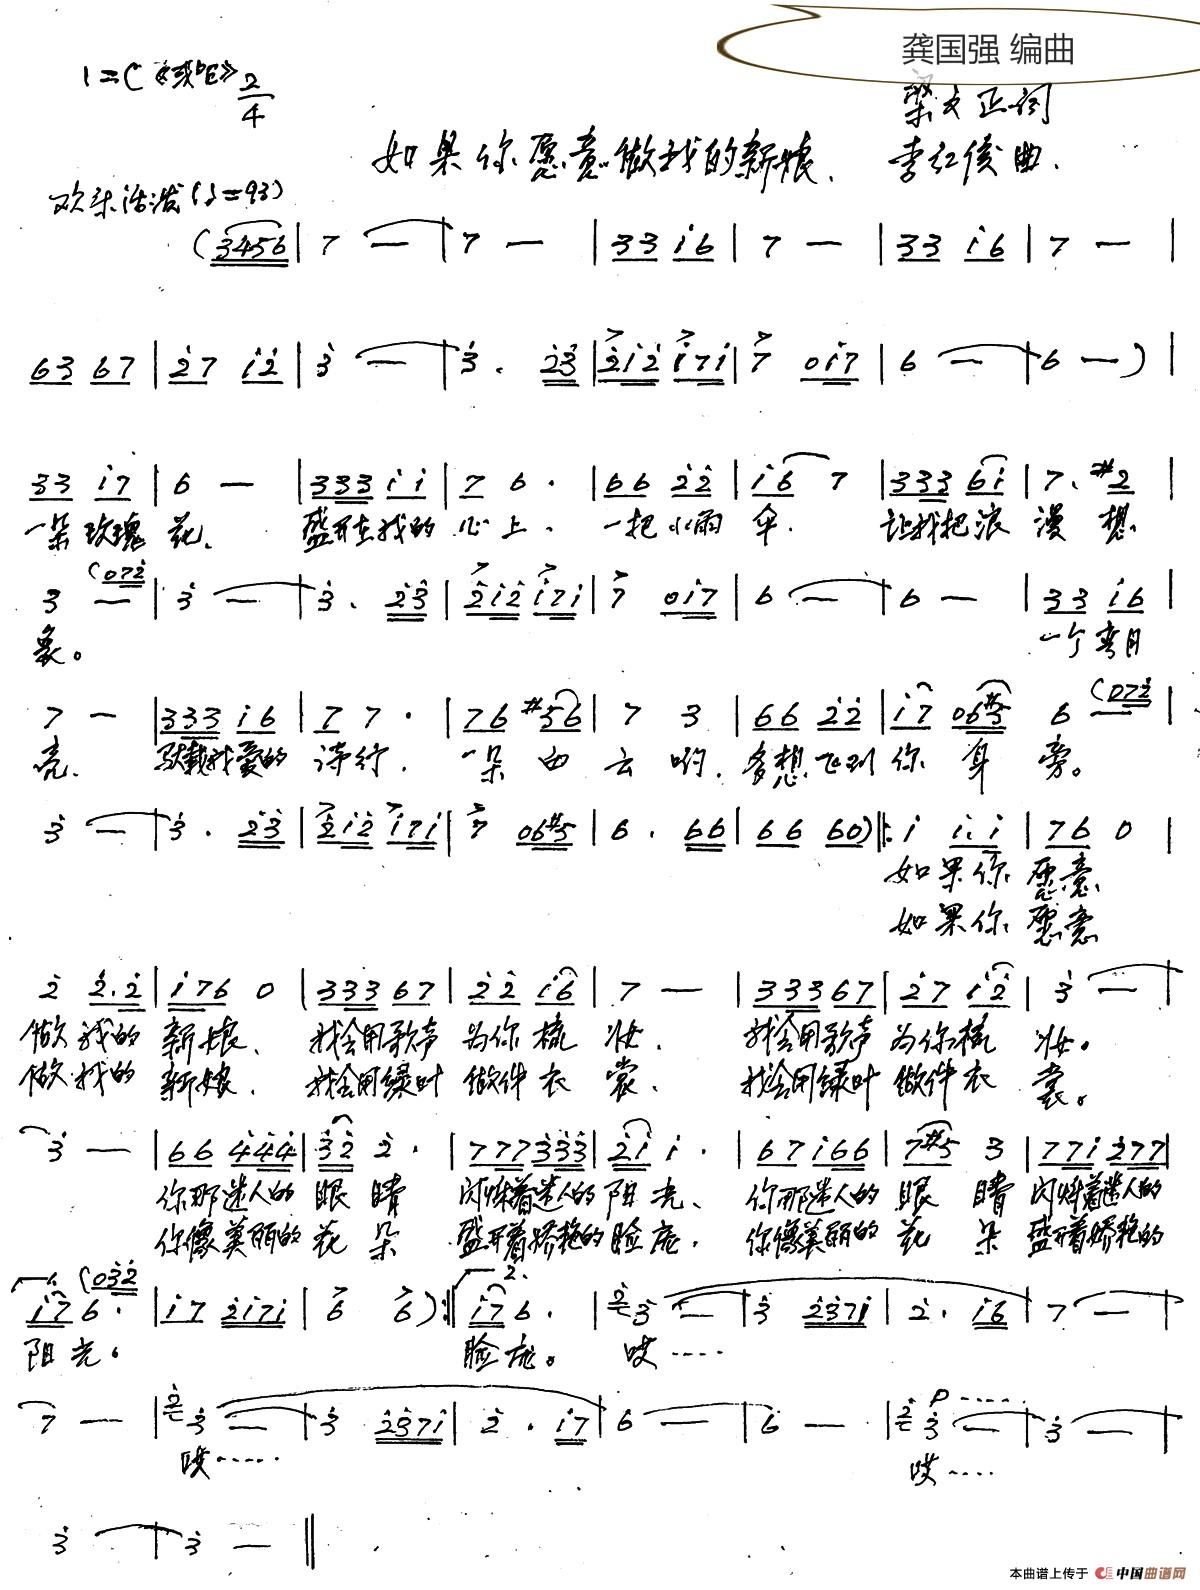 龚国强 编曲
1=C《或♭E》2/4
梁文正词
如果你愿意做我的新娘、 李红俊曲、
欢乐活泼(♩=93)
(3456 | 7 — | 7 — | 33 i6 | 7 — | 33 i6 | 7 — |
63 67 | 2̇7 i2̇ | 3̇ — | 3̇. 2̇3̇ | 2̇i2̇ i7i | 7 0i7 | 6 — | 6 —) |
33 i7 | 6 — | 333 ii | 7 6· | 66 2̇2̇ | i6 7 | 333 6i | 7. #2 |
一朵玫瑰 花、 盛开在我的 心上、 一把小雨 伞、 让我把浪 漫 想
(072̇
3 — | 3̇ — | 3̇. 2̇3̇ | 2̇i2̇ i7i | 7 0i7 | 6 — | 6 — | 33 i6 |
象。 一个弯月
7 — | 333 i6 | 7 7· | 76 #56 | 7 3 | 66 2̇2̇ | i7 06#5 | 6 — (072̇ |
亮、 驮载我爱的 诗行、 一朵 白 云 哟、 多想飞到 你 身 旁。
3̇ — | 3̇. 2̇3̇ | 2̇i2̇ i7i | 7 06#5 | 6. 66 | 66 60) ‖: i i.i | 76 0 |
如果你 愿意、
如果你 愿意
2̇ 2̇.2̇ | i76 0 | 333 67 | 2̇2̇ i6 | 7 — | 33367 | 2̇7 i2̇ | 3̇ — |
做 我的 新娘、 我会用歌声 为你 梳 妆、 我会用歌声 为你梳 妆。
做 我的 新娘、 我会用绿叶 做件 衣 裳、 我会用绿叶 做件衣 裳。
3̇ — | 66 4̇4̇4̇ | 3̇2̇ 2̇· | 7773̇3̇3̇ | 2̇i i· | 67 i66 | 7#5 3 | 77i 2̇77 |
你那迷人的 眼 睛 闪烁着迷人的 阳 光、 你那迷人的 眼 睛 闪烁着迷人的
你像美丽的 花 朵 盛开着娇艳的 脸庞、 你像美丽的 花 朵 盛开着娇艳的
1. (03̇2̇ 2.
i7 6· | i7 2̇i7i | 6 6) :‖ i7 6· | 2̇3̇ — | 3̇ 2̇3̇7i | 2̇· i6 | 7 — |
阳光。 脸庞。 哎·····
7 — | 2̇3̇ — | 3̇ 2̇3̇7i | 2̇· i7 | 6 — | 6 — | 2̇3̇ — | 3̇ — |
P·····
哎····· 哎····
3̇ — | 3̇ — ‖
本曲谱上传于 中国曲谱网